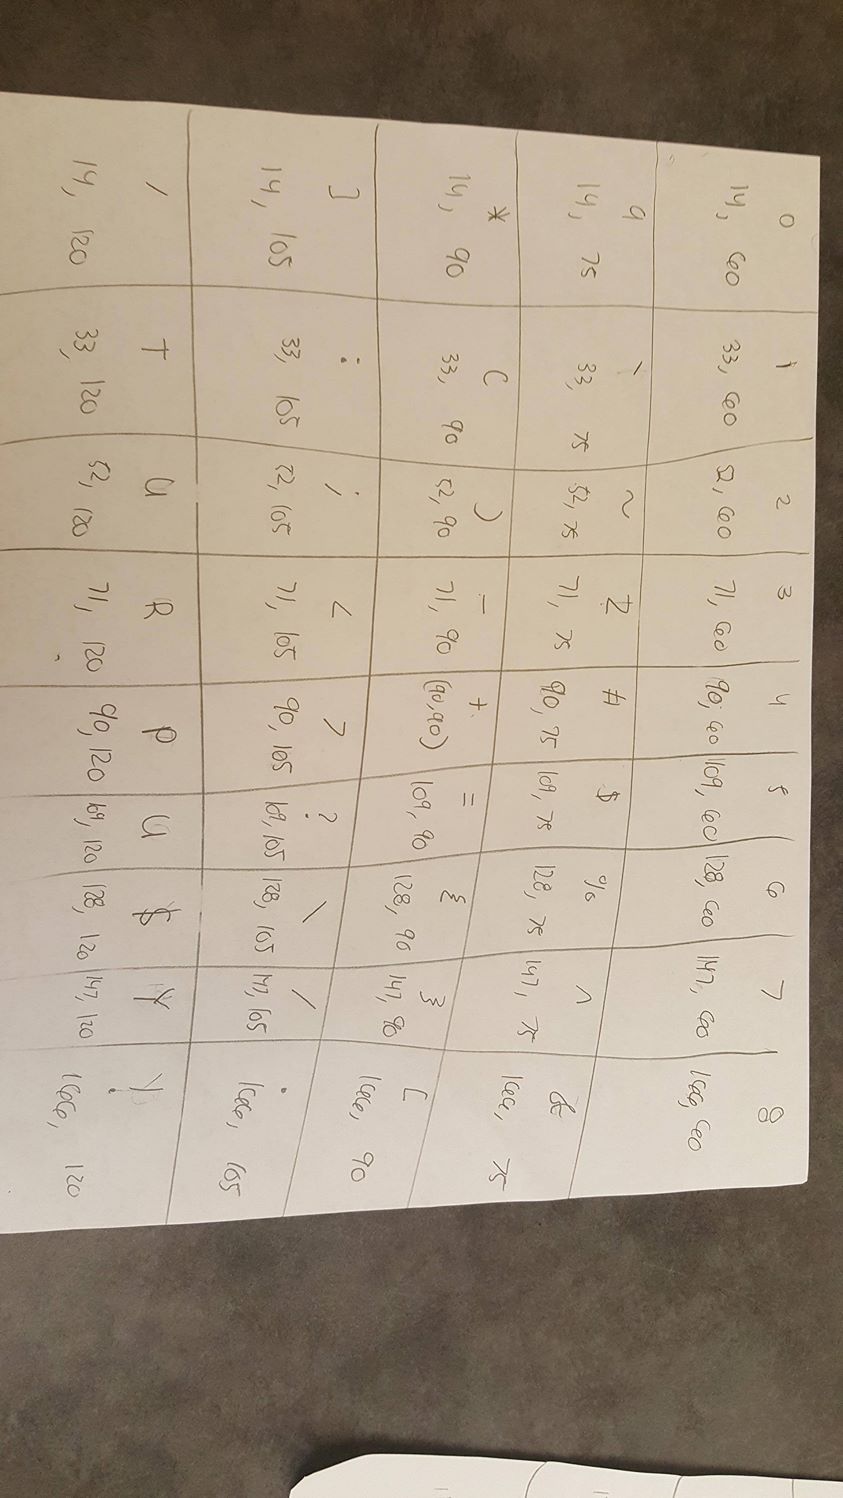 0 1 2 3 4 5 6 7 8
14, 60 33, 60 52, 60 71, 60 90, 60 109, 60 128, 60 147, 60 166, 60
9 ` ~ # $ % ^ &
14, 75 33, 75 52, 75 71, 75 90, 75 109, 75 128, 75 147, 75 166, 75
* ( ) - + = { } [
14, 90 33, 90 52, 90 71, 90 (90, 90) 109, 90 128, 90 147, 90 166, 90
] : ; < > ? \ / .
14, 105 33, 105 52, 105 71, 105 90, 105 109, 105 128, 105 147, 105 166, 105
, T U R P U $ Y
14, 120 33, 120 52, 120 71, 120 90, 120 109, 120 128, 120 147, 120 166, 120